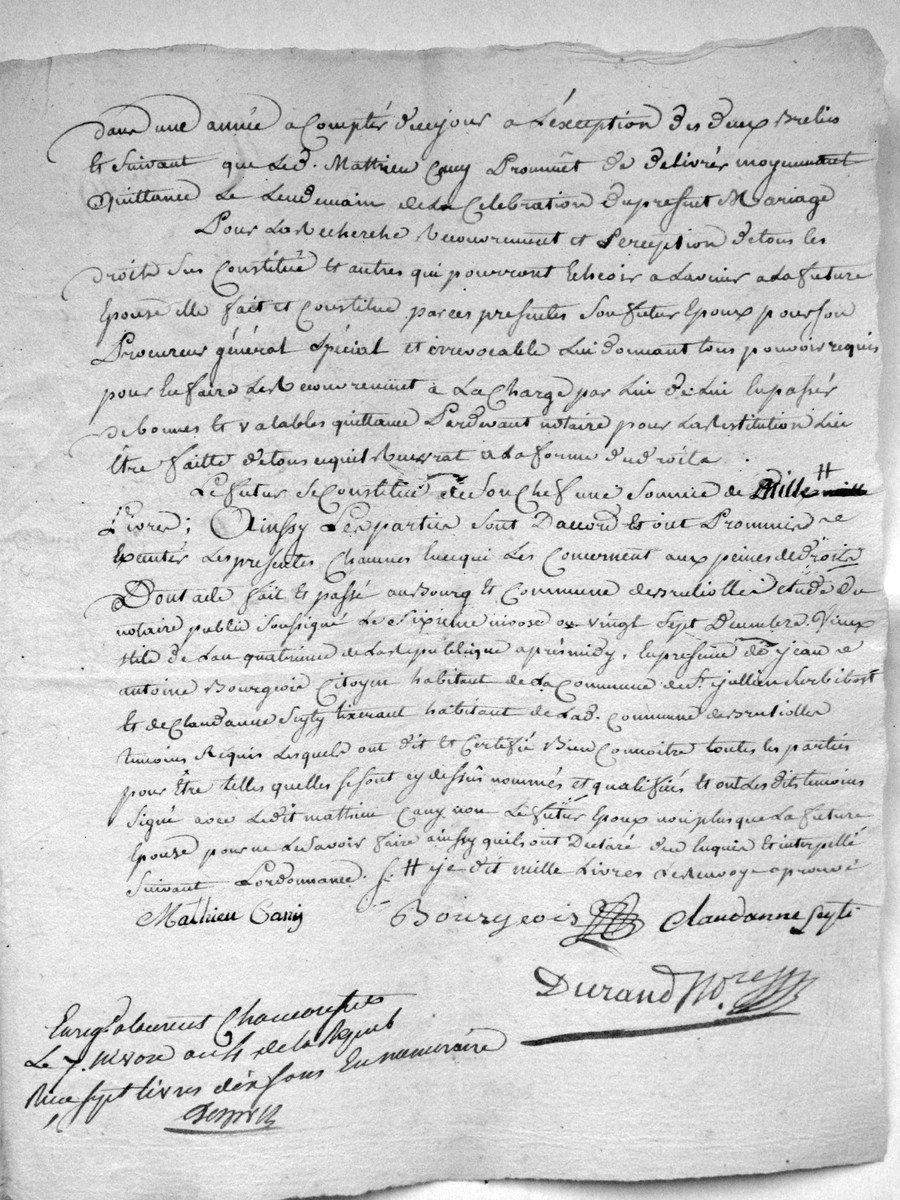 dans une année a Compter de ce jour a L'exception des deux Brebis
Et Suivant que Led. Mathieu Cany Prommet de delivrér moyennant
Quittance Le Lendemain de La Celebration du present Mariage
Pour La Recherche Recouvrement et Perception de tous les
droits Sus Constitué Et autres qui pourront Echeoir a Lavenir a La future
Epouse elle fait et Constitue par ces presentes Son futur Epoux pour Son
Procureur général Spécial et irrevocable Lui donnant tous pouvoir requis
pour En faire Le Recouvrement à La Charge par Lui de Lui En passér
de bonnes Et valables quittance Pardevant notaire pour La Restitution Lui
Être faitte de tous ce quil Recevrat a La forme du droits
Le futur Se Constitue de Son Chef une Somme de Mille #
Livres ; Ainssy Les parties Sont Daccord Et ont Prommis de
Executér Les presentes Chacunes En ce qui Les Concernent aux peines de droits
Dont acte fait Et passé au Bourg Et Commune de Brusiolle étude du
notaire public Soussigné Le Sixieme nivose ou vingt Sept Decembre Vieux
Stile de Lan quatrieme de La Republique aprés midy, En presence de jean
antoine Bourgeois Citoyen habitant de La Commune de St. jullien Sur bibost
Et de Claudanne Seyty tixerant habitant de Lad. Commune de Brusiolle
temoins Requis Lesquels ont dit Et Certifié Bien Connoitre toutes les parties
pour Être telles quelles se sont cy dessus nommés et qualifiés Et ont Les dits temoins
Signé avec Ledit mathieu Cany non Le futur Epoux non plus que La future
Epouse pour ne Le Savoir faire ainssy quils ont Declaré de ce Enquis Et interpellé
Suivant Lordonnance. # je dit mille Livres Le Renvoye aprouvé
Mathieu Cany Bourgeois Claudanne Seyti
Durand No.re
Enreg. a Laurent Chamousset
Le 7 nivose an 4 de la Repub
Rec sept livres dix sous En numeraire